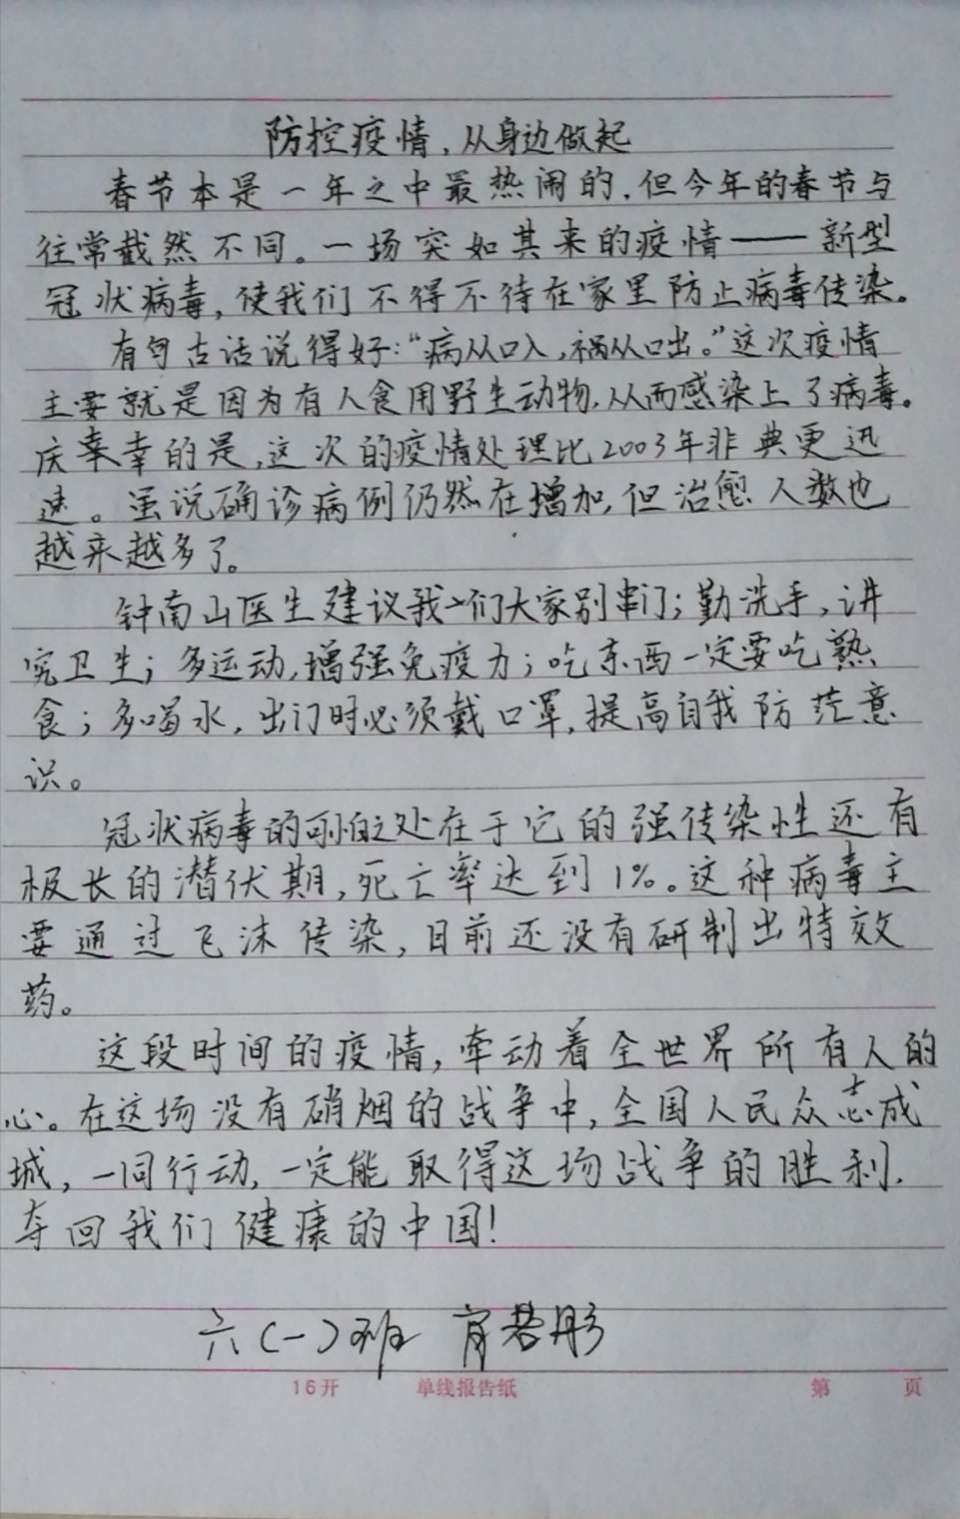 防控疫情，从身边做起
春节本是一年之中最热闹的，但今年的春节与
往常截然不同。一场突如其来的疫情——新型
冠状病毒，使我们不得不待在家里防止病毒传染。
有句古话说得好：“病从口入，祸从口出。”这次疫情
主要就是因为有人食用野生动物，从而感染上了病毒。
庆幸的是，这次的疫情处理比2003年非典更迅
速。虽说确诊病例仍然在增加，但治愈人数也
越来越多了。
钟南山医生建议我们大家别串门；勤洗手，讲
究卫生；多运动，增强免疫力；吃东西一定要吃熟
食；多喝水，出门时必须戴口罩，提高自我防范意
识。
冠状病毒的可怕之处在于它的强传染性还有
极长的潜伏期，死亡率达到1%。这种病毒主
要通过飞沫传染，目前还没有研制出特效
药。
这段时间的疫情，牵动着全世界所有人的
心。在这场没有硝烟的战争中，全国人民众志成
城，一同行动，一定能取得这场战争的胜利，
夺回我们健康的中国！
六（一）班 肖若彤
16开 单线报告纸 第 页